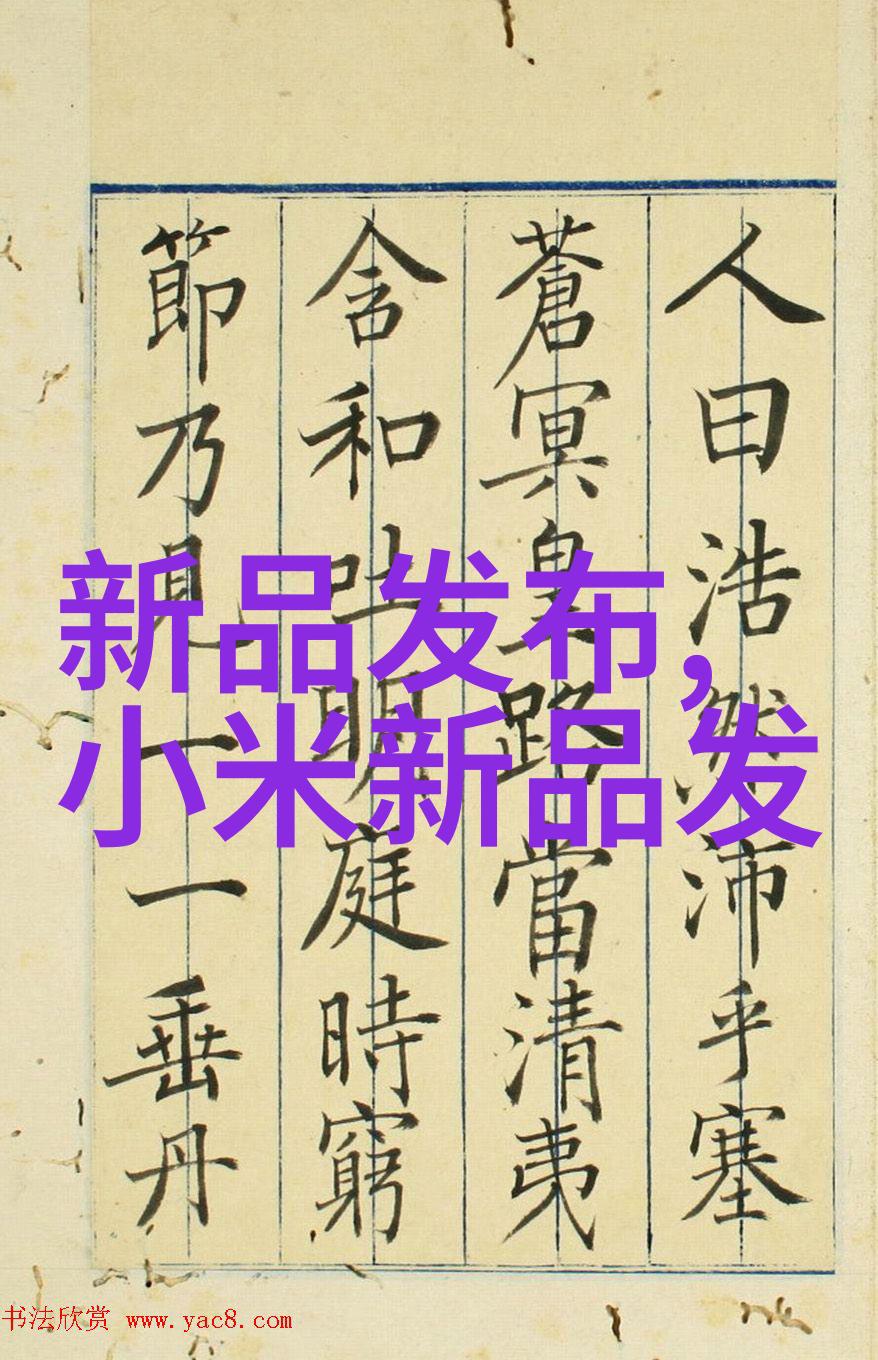 人曰浩然沛乎塞
蒼冥皇路當清夷
含和吐明庭時窮
節乃見一一垂丹
新品发布,
小米新品发
书法欣赏 www.yac8.com